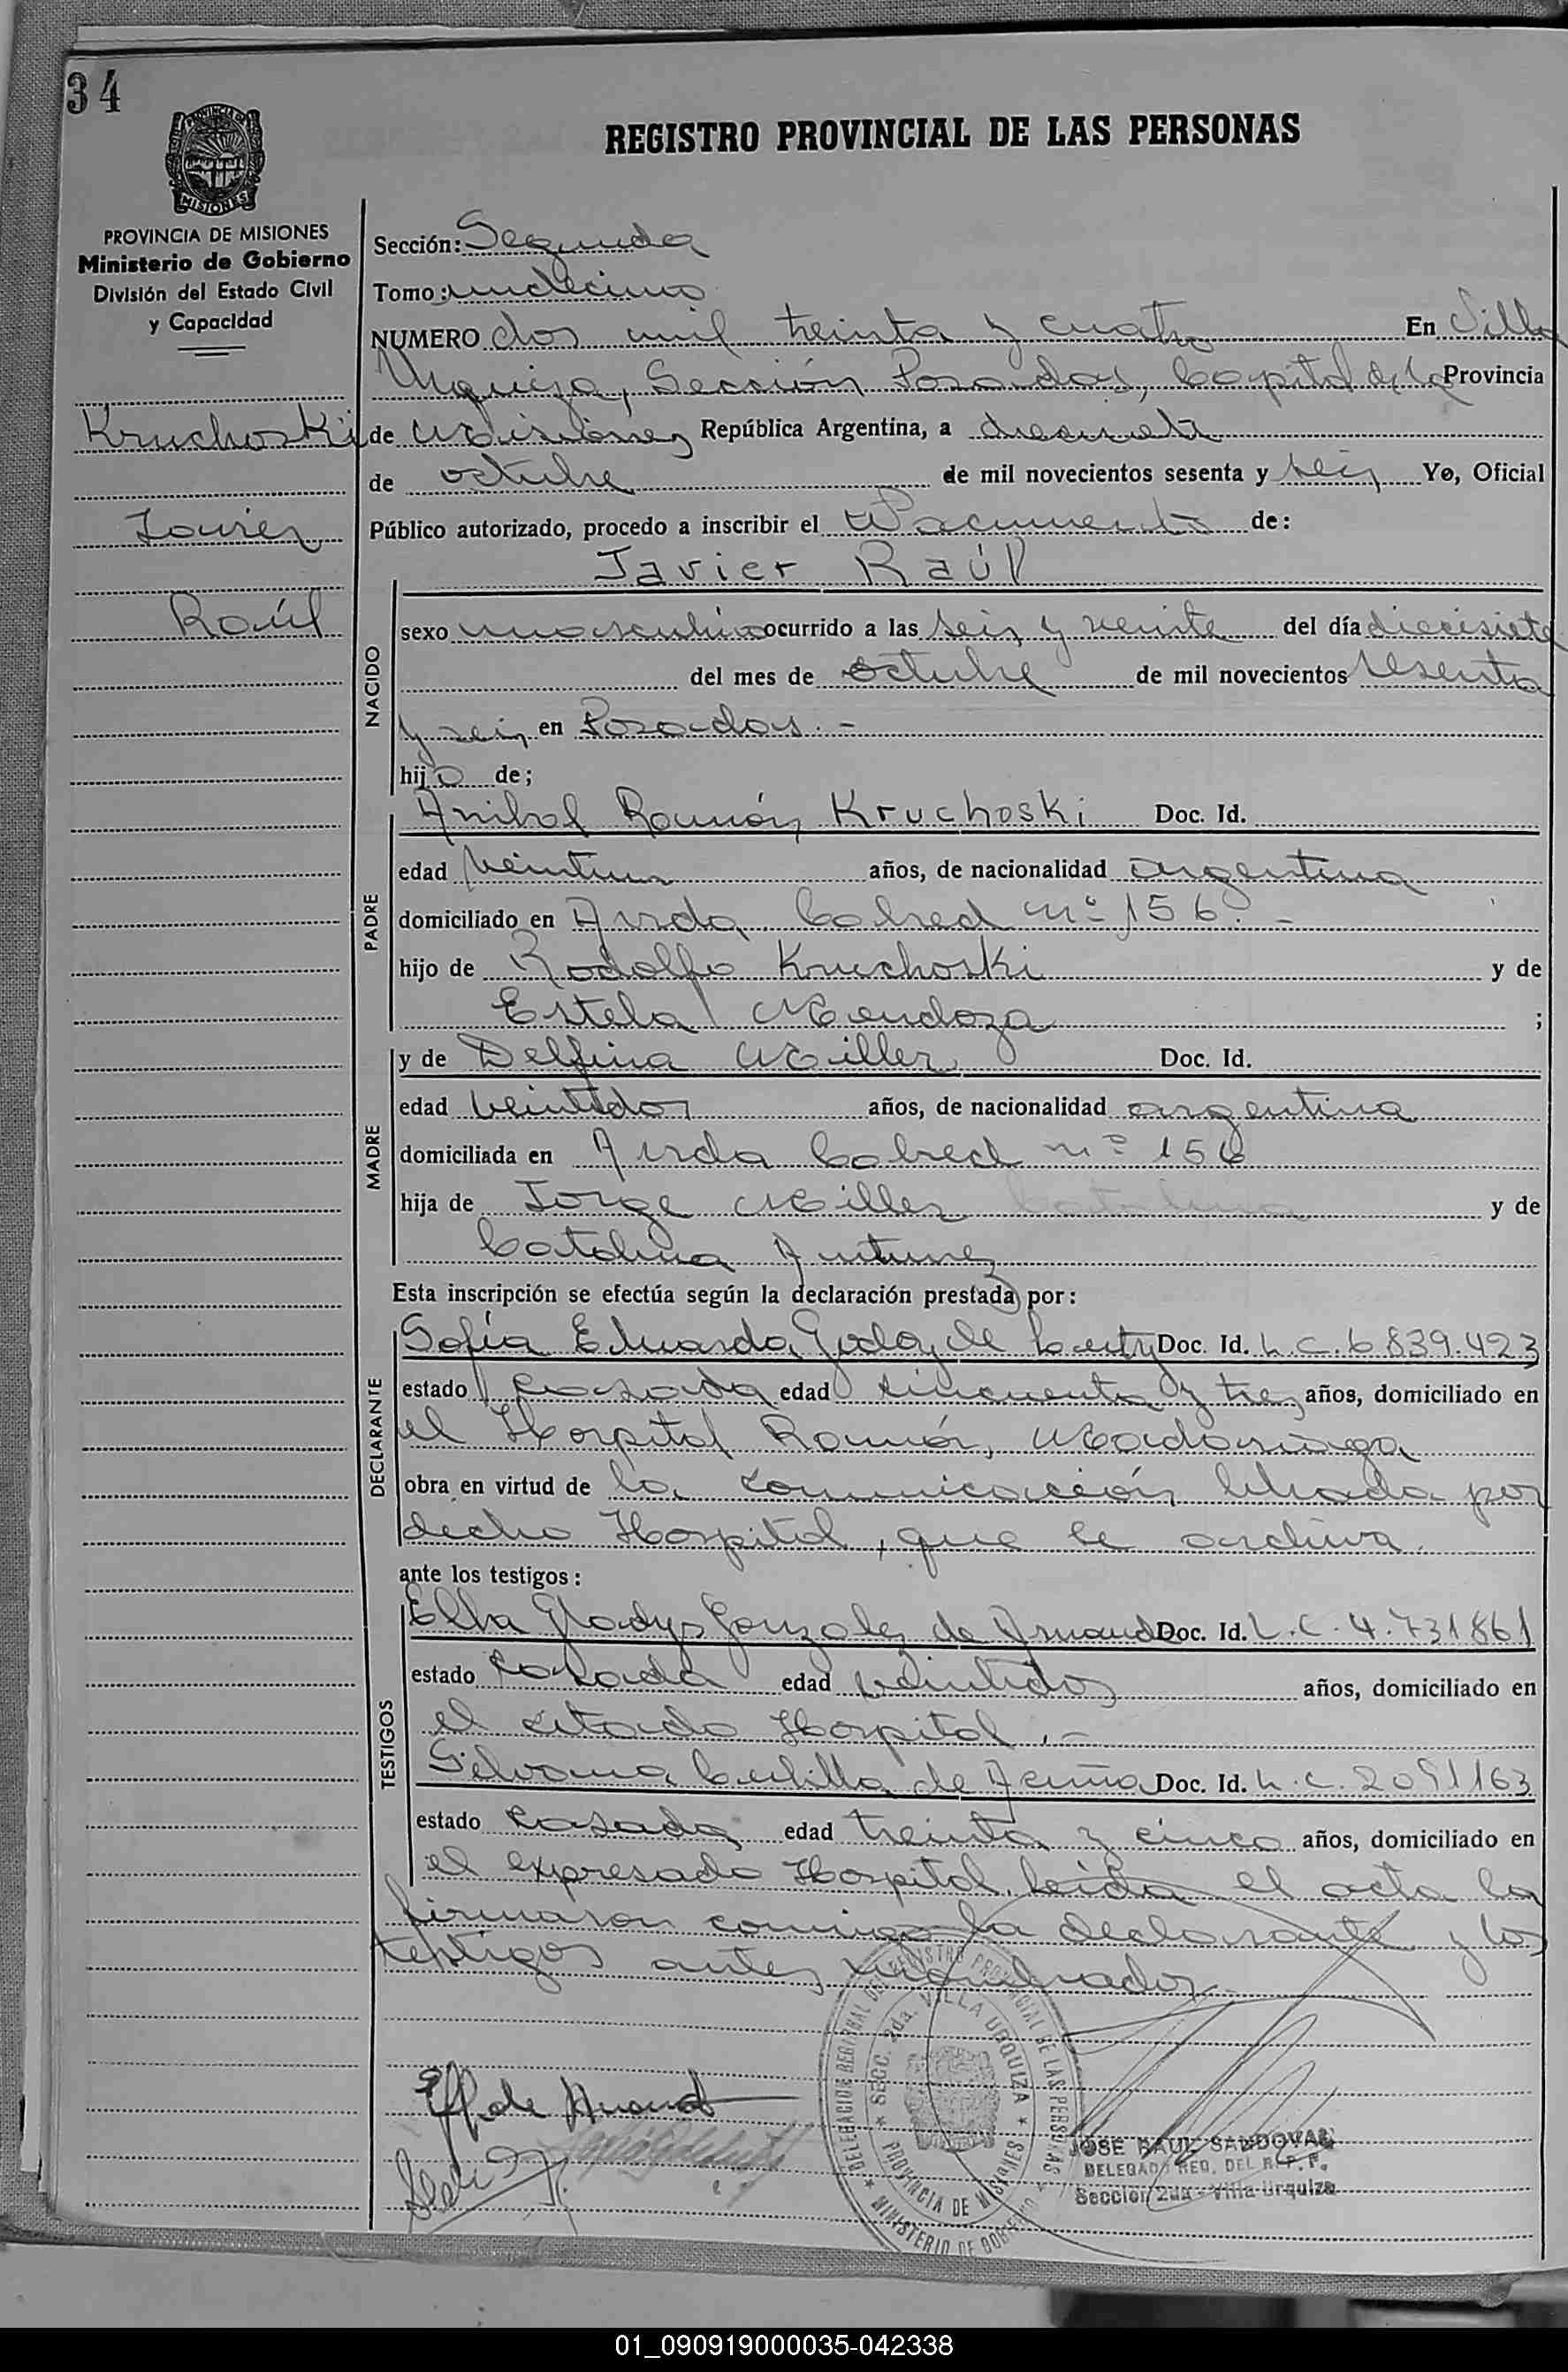 34
REGISTRO PROVINCIAL DE LAS PERSONAS
PROVINCIA DE MISIONES
Ministerio de Gobierno
División del Estado Civil
y Capacidad
Kruchoski
Javier
Raúl
Sección: Segunda
Tomo: undecimo
NUMERO dos mil treinta y cuatro En Villa
Urquiza, Sección Posadas, Capital de la Provincia
de Misiones República Argentina, a
de octubre de mil novecientos sesenta y seis Yo, Oficial
Público autorizado, procedo a inscribir el Nacimiento de:
Javier Raúl
NACIDO
sexo masculino ocurrido a las seis y veinte del día diecisiete
del mes de octubre de mil novecientos sesenta
y seis en Posadas. -
hijo de;
PADRE
Anibal Ramón Kruchoski Doc. Id.
edad veintiun años, de nacionalidad argentina
domiciliado en Avda Cabred nº 156. -
hijo de Rodolfo Kruchoski y de
Estela Mendoza ;
MADRE
y de Delfina Miller Doc. Id.
edad veintidos años, de nacionalidad argentina
domiciliada en Avda Cabred nº 156
hija de Jorge Miller y de
Catalina Antunez
Esta inscripción se efectúa según la declaración prestada por:
DECLARANTE
Sofía Eduarda Godoy de Doc. Id. L.C. 6839.423
estado casada edad cincuenta y tres años, domiciliado en
el Hospital Ramón Madariaga
obra en virtud de la comunicación librada por
dicho Hospital, que se archiva.
ante los testigos:
TESTIGOS
Elba Gladys Gonzalez de Doc. Id. L.C. 4.731861
estado casada edad veintidos años, domiciliado en
el citado Hospital. -
Silvana de Acuña Doc. Id. L.C. 2091163
estado casada edad treinta y cinco años, domiciliado en
el expresado Hospital leida el acta la
firmaron conmigo la declarante y los
testigos antes nombrados.
DELEGACION REGIONAL DEL REGISTRO PROVINCIAL DE LAS PERSONAS
SECC. 2da. VILLA URQUIZA
PROVINCIA DE MISIONES
MINISTERIO DE GOBIERNO
JOSE RAUL SANDOVAL
DELEGADO REG. DEL R. P. P.
Sección 2da - Villa Urquiza
01_090919000035-042338